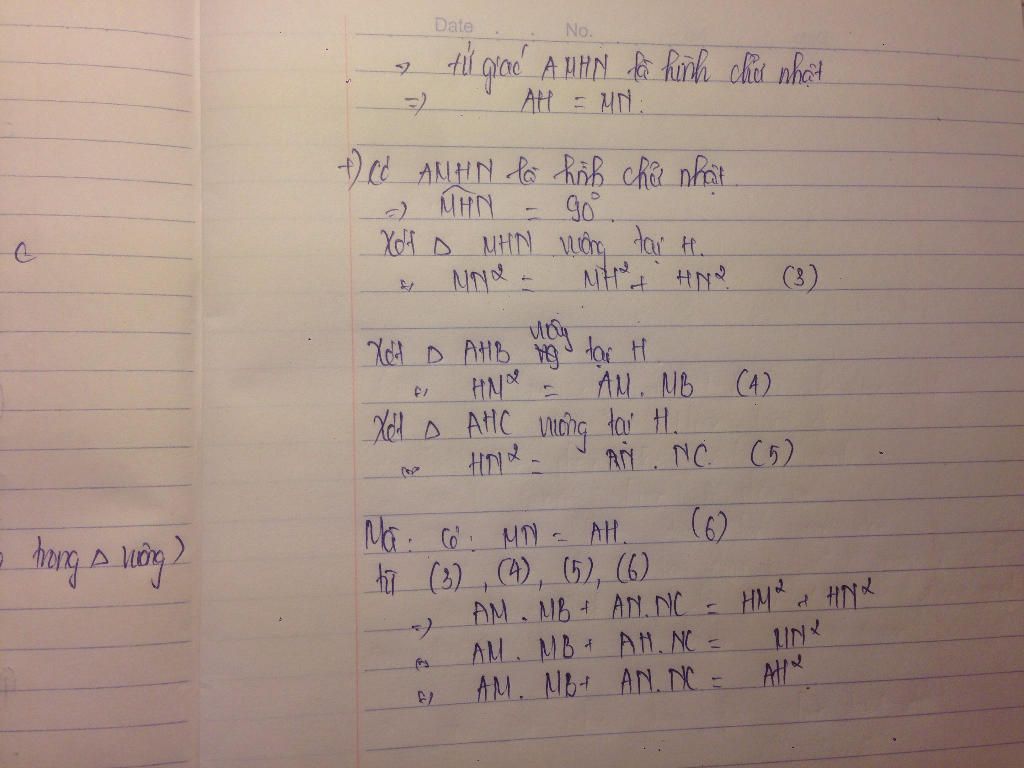 Date . . No.
=> tứ giác AMHN là hình chữ nhật
=> AH = MN.
+) Có AMHN là hình chữ nhật.
=> MHN = 90°.
Xét Δ MHN vuông tại H.
<=> MN² = MH² + HN². (3)
Xét Δ AHB vuông tại H
<=> HM² = AM. MB (4)
Xét Δ AHC vuông tại H.
<=> HN² = AN . NC. (5)
Mà: Có: MN = AH. (6)
từ (3), (4), (5), (6)
=> AM. MB + AN. NC = HM² + HN²
<=> AM. MB + AN. NC = MN²
<=> AM. MB + AN. NC = AH²
C
trong Δ vuông)